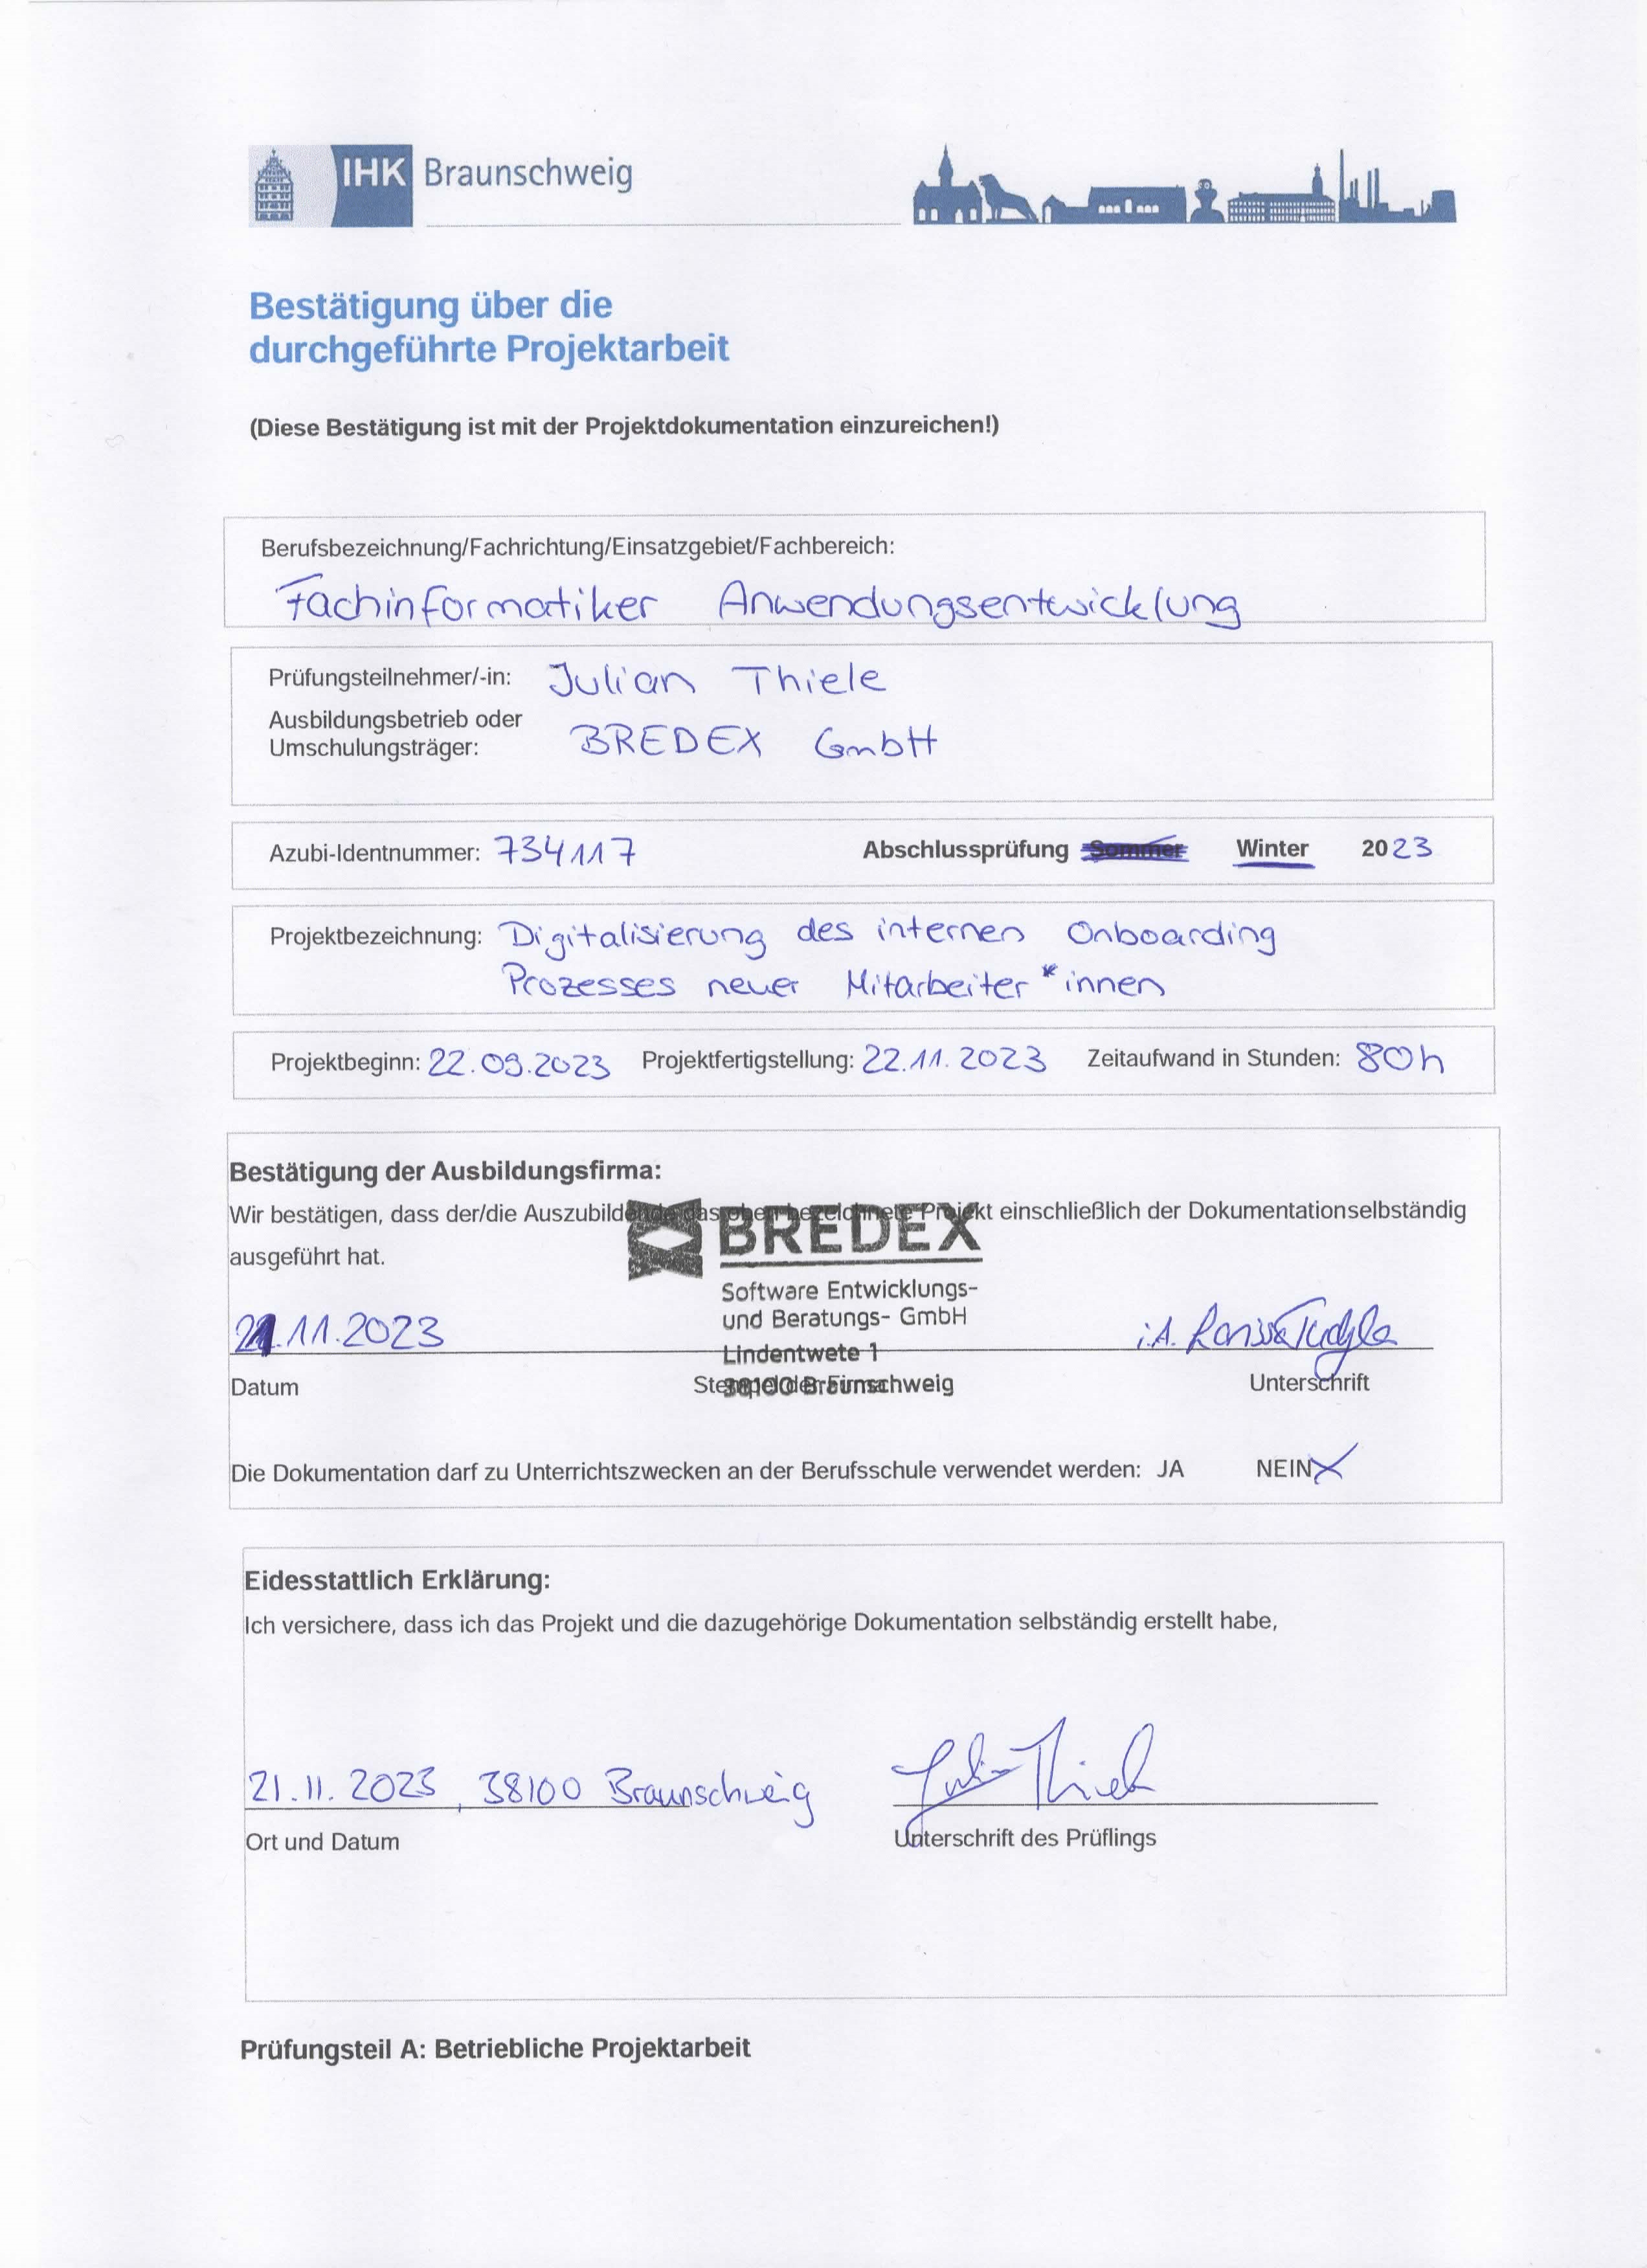 IHK Braunschweig
Bestätigung über die
durchgeführte Projektarbeit
(Diese Bestätigung ist mit der Projektdokumentation einzureichen!)
Berufsbezeichnung/Fachrichtung/Einsatzgebiet/Fachbereich:
Fachinformatiker Anwendungsentwicklung
Prüfungsteilnehmer/-in: Julian Thiele
Ausbildungsbetrieb oder
Umschulungsträger: BREDEX GmbH
Azubi-Identnummer: 734117 Abschlussprüfung Sommer Winter 2023
Projektbezeichnung: Digitalisierung des internen Onboarding
Prozesses neuer Mitarbeiter*innen
Projektbeginn: 22.09.2023 Projektfertigstellung: 22.11.2023 Zeitaufwand in Stunden: 80h
Bestätigung der Ausbildungsfirma:
Wir bestätigen, dass der/die Auszubildende das oben bezeichnete Projekt einschließlich der Dokumentationselbständig
ausgeführt hat.
BREDEX
Software Entwicklungs-
und Beratungs- GmbH
Lindentwete 1
38100 Braunschweig
21.11.2023 i.A.
Datum Stempel der Firma Unterschrift
Die Dokumentation darf zu Unterrichtszwecken an der Berufsschule verwendet werden: JA NEIN X
Eidesstattlich Erklärung:
Ich versichere, dass ich das Projekt und die dazugehörige Dokumentation selbständig erstellt habe,
21.11.2023, 38100 Braunschweig Julian Thiele
Ort und Datum Unterschrift des Prüflings
Prüfungsteil A: Betriebliche Projektarbeit